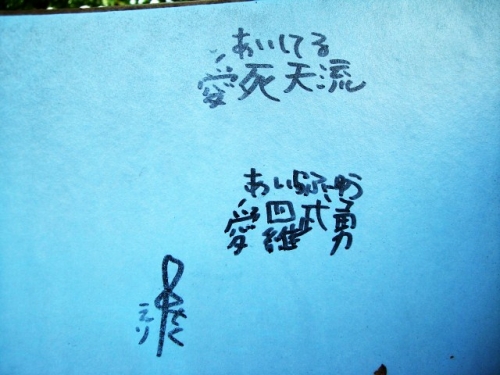 あいしてる
愛死天流
あいらぶゆう
愛羅武勇
えり